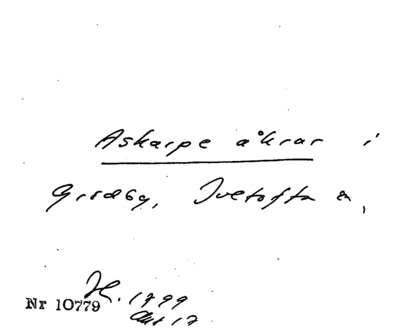 Askarpe åkrar i
Grödby, Ivetofta s,
H. 1799
Nr 10779
Akt 17